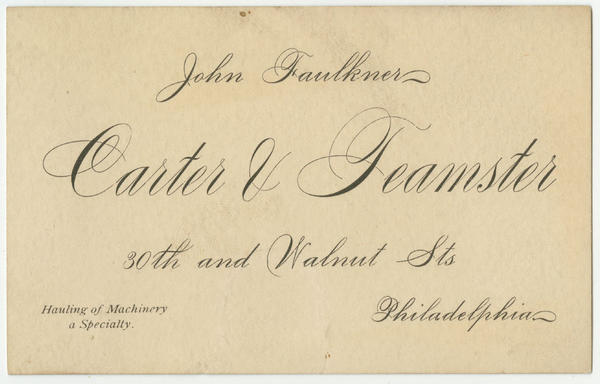 John Faulkner
Carter & Teamster
30th and Walnut Sts
Hauling of Machinery
a Specialty.
Philadelphia